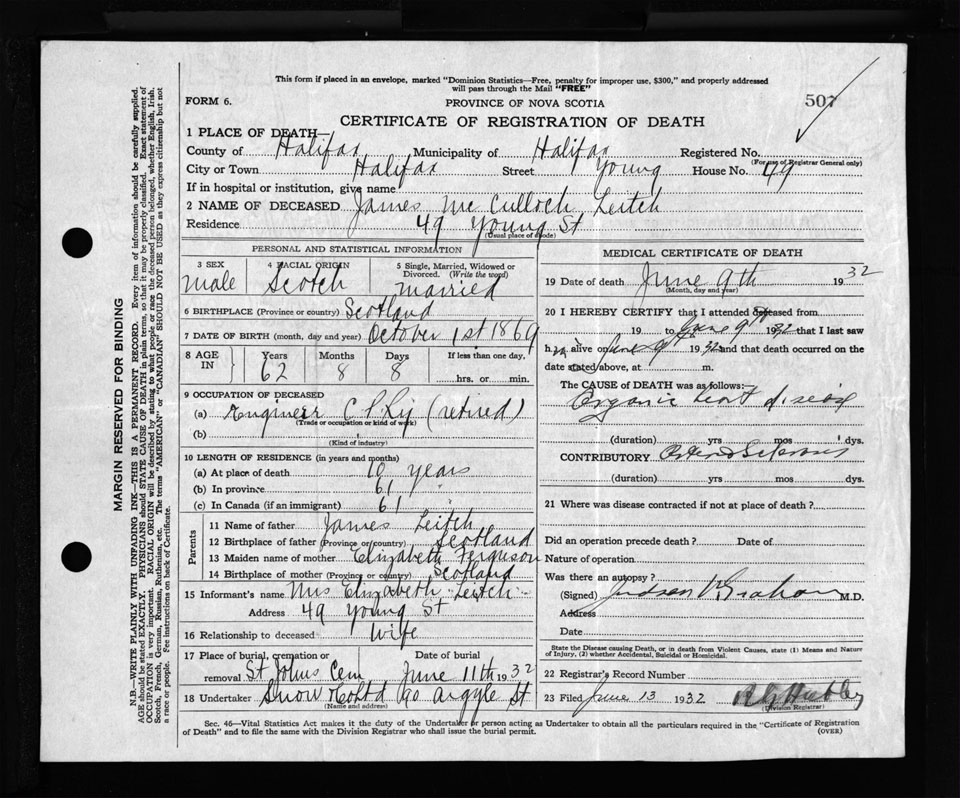 This form if placed in an envelope, marked "Dominion Statistics—Free, penalty for improper use, $300," and properly addressed
will pass through the Mail "FREE"
507
FORM 6.
PROVINCE OF NOVA SCOTIA
CERTIFICATE OF REGISTRATION OF DEATH
1 PLACE OF DEATH—
County of Halifax Municipality of Halifax Registered No.
(For use of Registrar General only)
City or Town Halifax Street Young House No. 49
If in hospital or institution, give name
2 NAME OF DECEASED James McCulloch Leitch
Residence 49 Young St
(Usual place of abode)
PERSONAL AND STATISTICAL INFORMATION
3 SEX 4 RACIAL ORIGIN 5 Single, Married, Widowed or
Divorced. (Write the word)
Male Scotch Married
6 BIRTHPLACE (Province or country) Scotland
7 DATE OF BIRTH (month, day and year) October 1st 1869
8 AGE IN Years Months Days If less than one day,
62 8 8 hrs. or min.
9 OCCUPATION OF DECEASED
(a) Engineer C P Ry (retired)
(Trade or occupation or kind of work)
(b)
(Kind of industry)
10 LENGTH OF RESIDENCE (in years and months)
(a) At place of death 10 years
(b) In province 61 "
(c) In Canada (if an immigrant) 61 "
Parents
11 Name of father James Leitch
12 Birthplace of father (Province or country) Scotland
13 Maiden name of mother Elizabeth Ferguson
14 Birthplace of mother (Province or country) Scotland
15 Informant's name Mrs Elizabeth Leitch
Address 49 Young St
16 Relationship to deceased Wife
17 Place of burial, cremation or Date of burial
removal St Johns Cem June 11th 1932
18 Undertaker Snow & Co Ltd 90 Argyle St
(Name and address)
MEDICAL CERTIFICATE OF DEATH
19 Date of death June 9th 1932
(Month, day and year)
20 I HEREBY CERTIFY that I attended deceased from
19 to June 9th 1932 that I last saw
him alive on June 9 1932 and that death occurred on the
date stated above, at m.
The CAUSE OF DEATH was as follows:
Organic heart disease
(duration) yrs mos dys.
CONTRIBUTORY Arterio Sclerosis
(duration) yrs mos dys.
21 Where was disease contracted if not at place of death?
Did an operation precede death? Date of
Nature of operation
Was there an autopsy?
(Signed) Judson V Graham M.D.
Address
Date
State the Disease causing Death, or in death from Violent Causes, state (1) Means and Nature
of Injury, (2) whether Accidental, Suicidal or Homicidal.
22 Registrar's Record Number
23 Filed June 13 1932
(Division Registrar)
Sec. 46—Vital Statistics Act makes it the duty of the Undertaker or person acting as Undertaker to obtain all the particulars required in the "Certificate of Registration
of Death" and to file the same with the Division Registrar who shall issue the burial permit. (OVER)
MARGIN RESERVED FOR BINDING
N.B.—WRITE PLAINLY WITH UNFADING INK—THIS IS A PERMANENT RECORD. Every item of information should be carefully supplied.
AGE should be stated EXACTLY. PHYSICIANS should STATE CAUSE OF DEATH in plain terms, so that it may be properly classified. Exact statement of
OCCUPATION is very important. RACIAL ORIGIN will be described by stating to what people or race the deceased person belonged, whether English, Irish,
Scotch, French, German, Russian, Ruthenian, etc. The terms "AMERICAN" or "CANADIAN" SHOULD NOT BE USED as they express citizenship but not
a race or people. See instructions on back of Certificate.